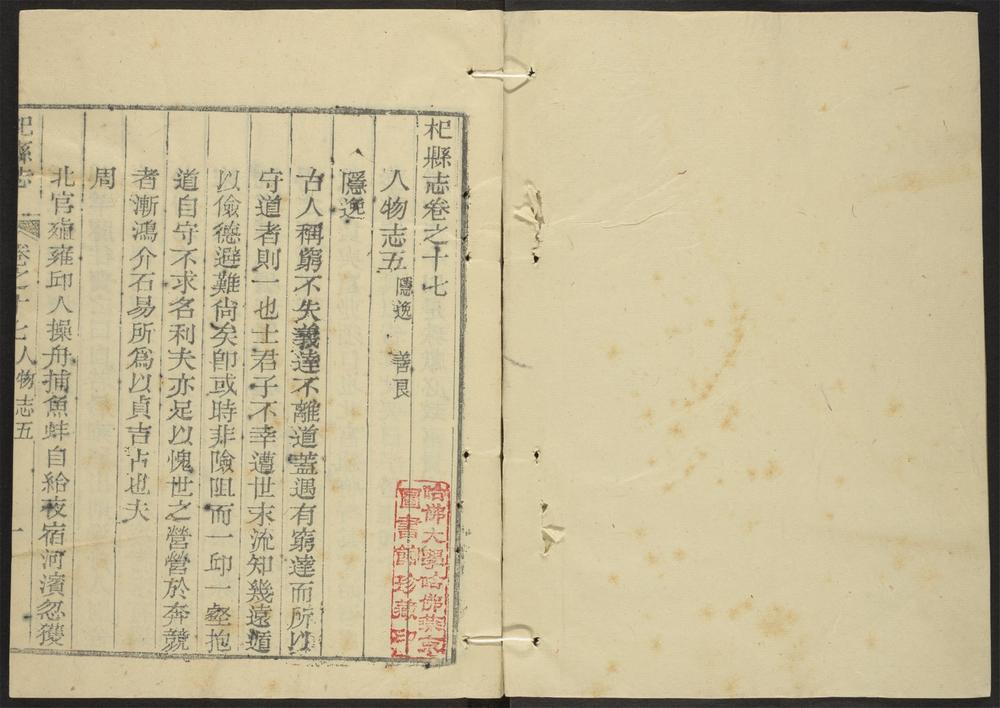 杞縣志卷之十七
人物志五 隱逸 善良
隱逸
古人稱窮不失義達不離道蓋遇有窮達而所以
守道者則一也士君子不幸遭世末流知幾遠遁
以儉德避難尙矣卽或時非險阻而一邱一壑抱
道自守不求名利夫亦足以愧世之營營於奔競
者漸鴻介石易所爲以貞吉占也夫
周
北宮 雍邱人操舟捕魚蚌自給夜宿河濱忽獲
杞縣志 卷之十七 人物志五 一
哈佛大學哈佛燕京
圖書館珍藏印